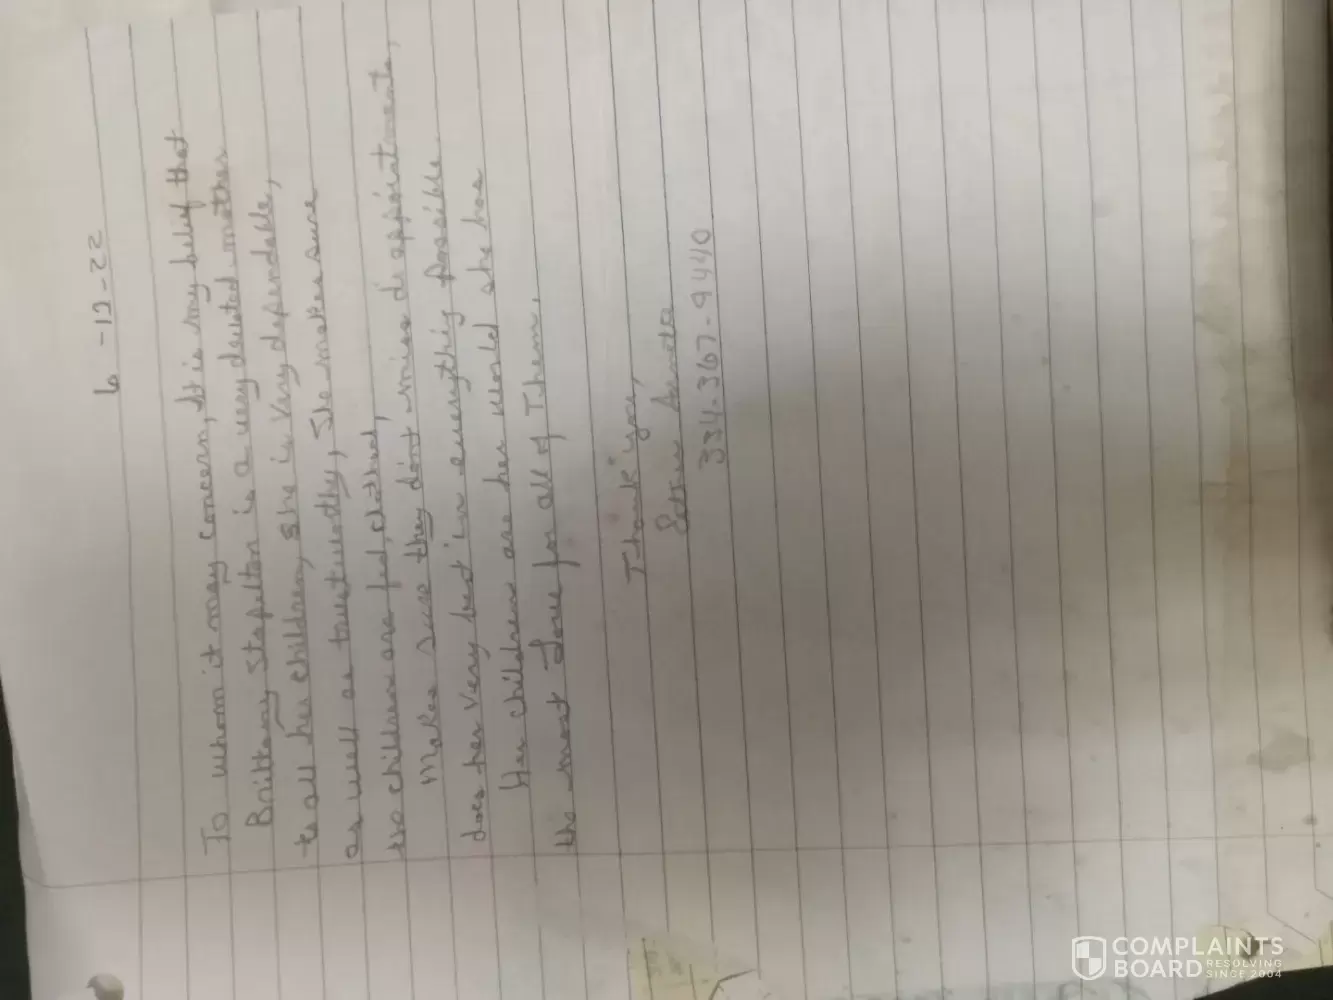 6-13-22
To whom it may concern, It is my belief that
Brittany Stapelton is a very devoted mother
to all her children, she is Very dependable,
as well as trustworthy, She makes sure
the children are fed, clothed,
Makes sure they don't miss dr appointments,
does her Very best in everything possible.
Her children are her world she has
the most Love for all of Them.
Thank you,
334-367-9440
COMPLAINTS
BOARD RESOLVING
SINCE 2004